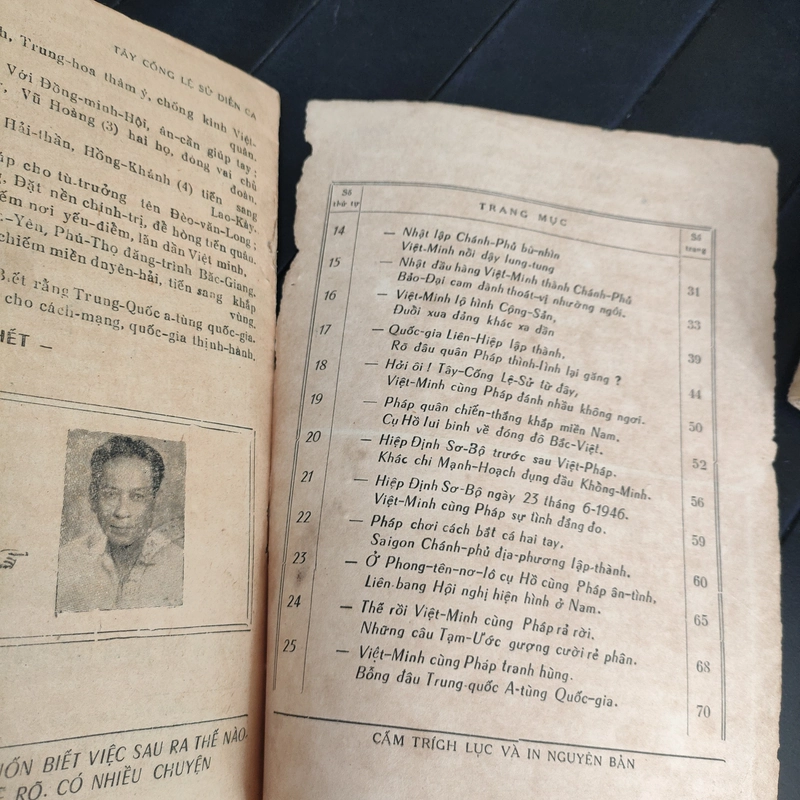 TÂY CỐNG LỆ SỬ DIỄN CA
Trung-hoa thâm ý, chống kình Việt-
quân.
Với Đồng-minh-Hội, ân-cần giúp tay;
Vũ Hoàng (3) hai họ, đóng vai chủ
đoàn.
Hải-thần, Hồng-Khánh (4) tiến sang
Lao-Kày.
áp cho tù-trưởng tên Đèo-văn-Long;
Đặt nền chính-trị, đề hòng tiến quân.
iếm nơi yếu-điểm, lấn dần Việt minh.
-Yên, Phú-Thọ đăng-trình Bắc-Giang.
chiếm miền dnyên-hải, tiến sang khắp
vùng.
Biết rằng Trung-Quốc a-tùng quốc-gia.
cho cách-mạng, quốc-gia thịnh-hành.
HẾT –
UỐN BIẾT VIỆC SAU RA THẾ NÀO.
RÕ. CÓ NHIỀU CHUYỆN
Số thứ tự
TRANG MỤC
Số trang
14 — Nhật lập Chánh-Phủ bù-nhìn
Việt-Minh nổi dậy lung-tung 31
15 — Nhật đầu hàng Việt-Minh thành Chánh-Phủ
Bảo-Đại cam đành thoát-vị nhường ngôi. 33
16 — Việt-Minh lộ hình Cộng-Sản,
Đuổi xua đảng khác xa dần 39
17 — Quốc-gia Liên-Hiệp lập thành.
Rõ đâu quân Pháp thình-lình lại găng ? 44
18 — Hởi ôi ! Tây-Cống Lệ-Sử từ đây,
Việt-Minh cùng Pháp đánh nhầu không ngơi. 50
19 — Pháp quân chiến-thắng khắp miền Nam.
Cụ Hồ lui binh về đóng đô Bắc-Việt. 52
20 — Hiệp Định Sơ-Bộ trước sau Việt-Pháp.
Khác chi Mạnh-Hoạch đụng đầu Khồng-Minh. 56
21 — Hiệp Định Sơ-Bộ ngày 23 tháng 6-1946.
Việt-Minh cùng Pháp sự tình đắng đo. 59
22 — Pháp chơi cách bắt cá hai tay,
Saigon Chánh-phủ địa-phương lập-thành. 60
23 — Ở Phong-tên-nơ-lô cụ Hồ cùng Pháp ân-tình,
Liên-bang Hội nghị hiện hình ở Nam. 65
24 — Thế rồi Việt-Minh cùng Pháp rả rời.
Những câu Tạm-Ước gượng cười rẻ phân. 68
25 — Việt-Minh cùng Pháp tranh hùng.
Bỗng đâu Trung-quốc A-tùng Quốc-gia. 70
CẤM TRÍCH LỤC VÀ IN NGUYÊN BẢN